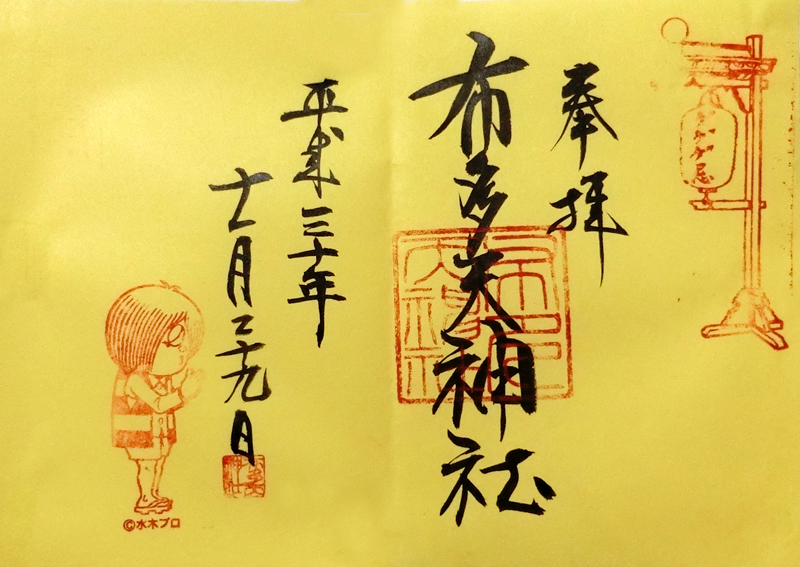 奉拝
布多天神社
平成三十年
十一月二十九日
©水木プロ